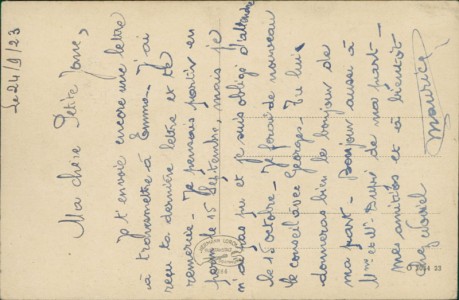 Le 24/8/23
Ma chère Petite Jane,
Je t'envoie encore une lettre
à transmettre à Emma. J'ai
reçu ta dernière lettre et te
remercie. Je pensais partir en
perm le 15 septembre, mais je
n'ai pas pu et je suis obligé d'attendre
le 15 octobre. Je ferai de nouveau
le conseil avec Georges. Tu lui
donneras bien le bonjour de
ma part. Bonjour aussi à
Mme et Mr de ma part.
mes amitiés et à bientôt
chez
Maurice